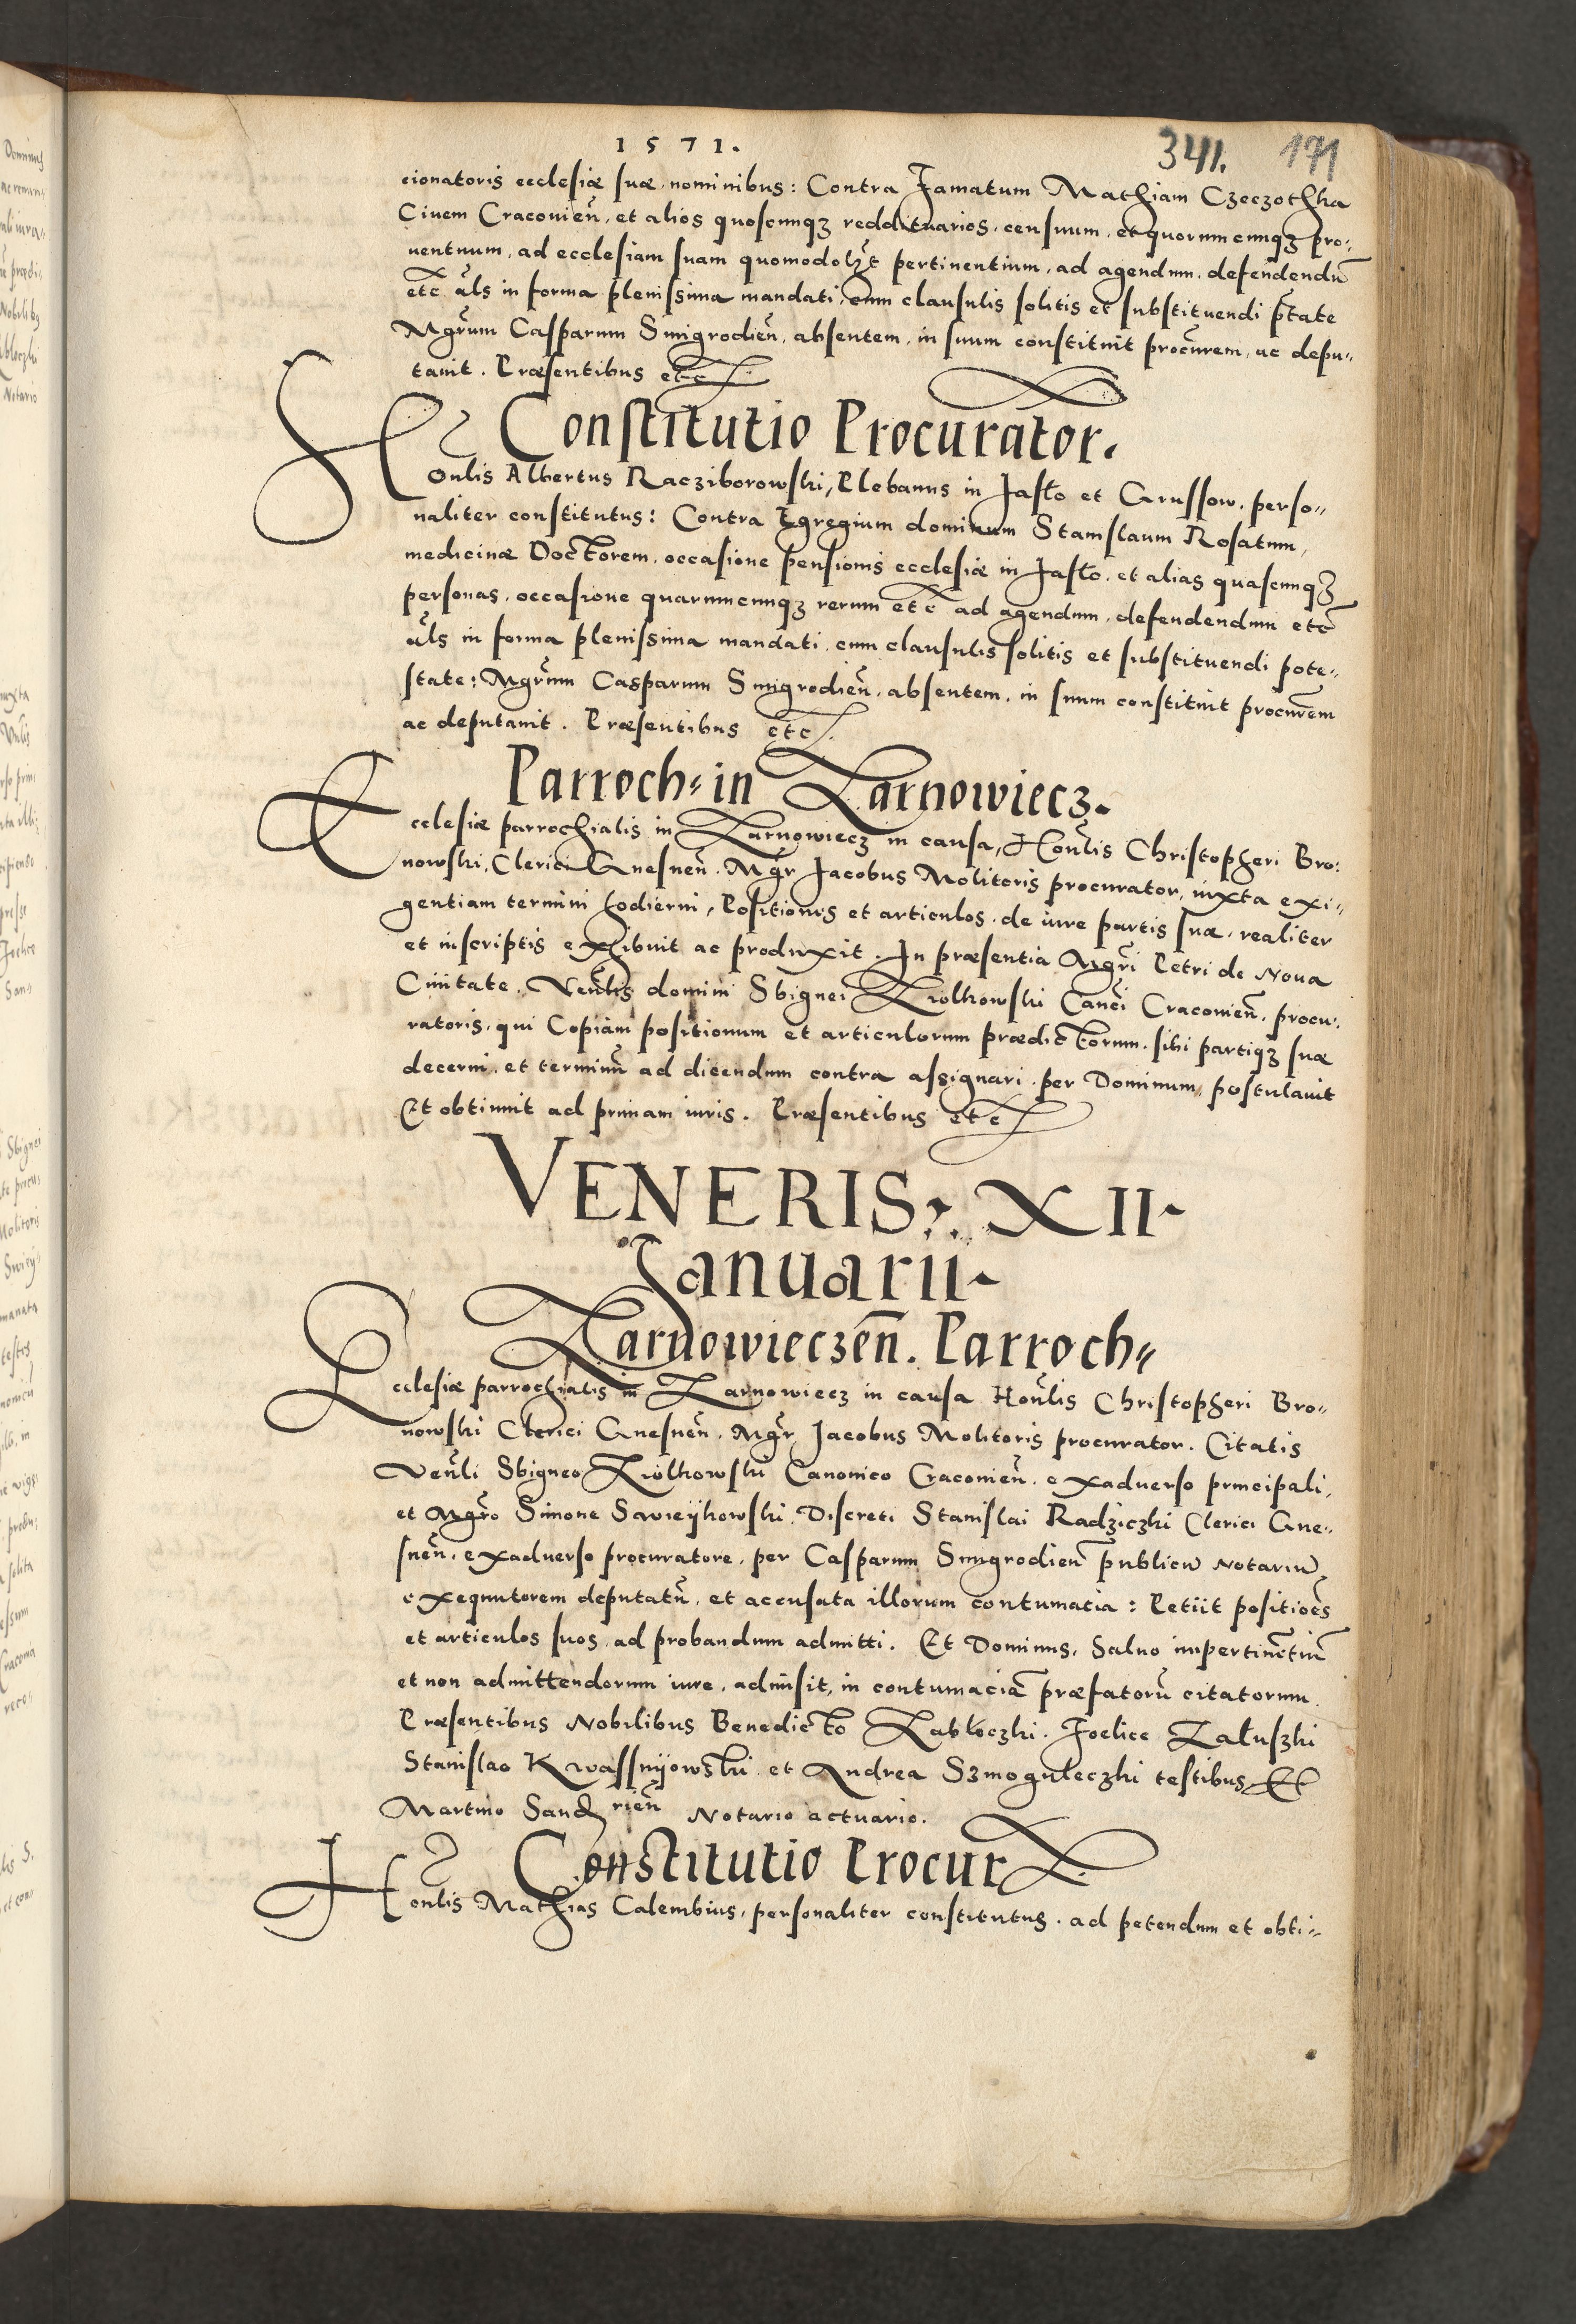 1571.
341. 171
cionatoris ecclesiæ suæ nominibus: Contra Famatum Mathiam Czeczothka
Ciuem Cracouień, et alios quoscunqȝ reddituarios, censuum, et quorumcunqȝ pro:
uentuum, ad ecclesiam suam quomodolȝt pertinentium, ad agendum, defendendū
etc̄ als in forma plenissima mandati, cum clausulis solitis et substituendi p̄tate
Mgrum Casparum Smigrodień, absentem, in suum constituit procūrem, ac depu„
tauit. Præsentibus etc
Constitutio Procurator.
Honlis Albertus Racziborowski, Plebanus in Jasło et Grussow, perso„
naliter constitutus: Contra Egregium dominum Stanislaum Rosatum,
medicinæ Doctorem, occasione pensionis ecclesiæ in Jasło, et alias quascunqȝ
personas, occasione quarumcunqȝ rerum etc̄ ad agendum, defendendum etc̄
als in forma plenissima mandati, cum clausulis solitis et substituendi pote„
state: Mgrum Casparum Smigrodień, absentem, in suum constituit procūrem
ac deputauit. Præsentibus etc.
Parroch„ in Zarnowiecz.
Ecclesiæ parrochialis in Zarnowiecz in causa, Honlis Christopheri Bro:
nowski, Clerici Gnesneń. Mgr Jacobus Molitoris procurator, iuxta exi„
gentiam termini hodierni, Positiones et articulos, de iure partis suæ, realiter
et inscriptis exhibuit ac produxit. In præsentia Mgri Petri de Noua
Ciuitate, Venlis domini Sbignei Ziolkowski Canci Cracouień, procu:
ratoris, qui Copiam positionum et articulorum prædictorum, sibi partiqȝ suæ
decerni, et terminū ad dicendum contra assignari per Dominum, postulauit
Et obtinuit ad primam iuris. Præsentibus etc
VENERIS: XII
Januarii
Zarnowieczeń. Parroch„
Ecclesiæ parrochialis in Zarnowiecz in causa Honlis Christopheri Bro„
nowski Clerici Gnesneń, Mgr Jacobus Molitoris procurator. Citatis
Venli Sbigneo Ziolkowski Canonico Cracouień, exaduerso principali,
et Mgro Simone Sawieÿkowski, Discreti Stanislai Radziczki Clerici Gne„
sneń, exaduerso procuratore, per Casparum Smigrodień publicū Notariū,
exequutorem deputatū, et accusata illorum contumacia: Petiit positiões
et articulos suos, ad probandum admitti. Et Dominus, Saluo impertinētiū
et non admittendorum iure, admisit, in contumaciā præfatorū citatorum.
Præsentibus Nobilibus Benedicto Zabłoczki, Foelice Załuszki
Stanislao Kwassnÿowski et Andrea Szmoguleczki testibus Et
Martino Sandrień Notario actuario.
Constitutio Procur
Honlis Mathias Calembius, personaliter constitutus, ad petendum et obti„